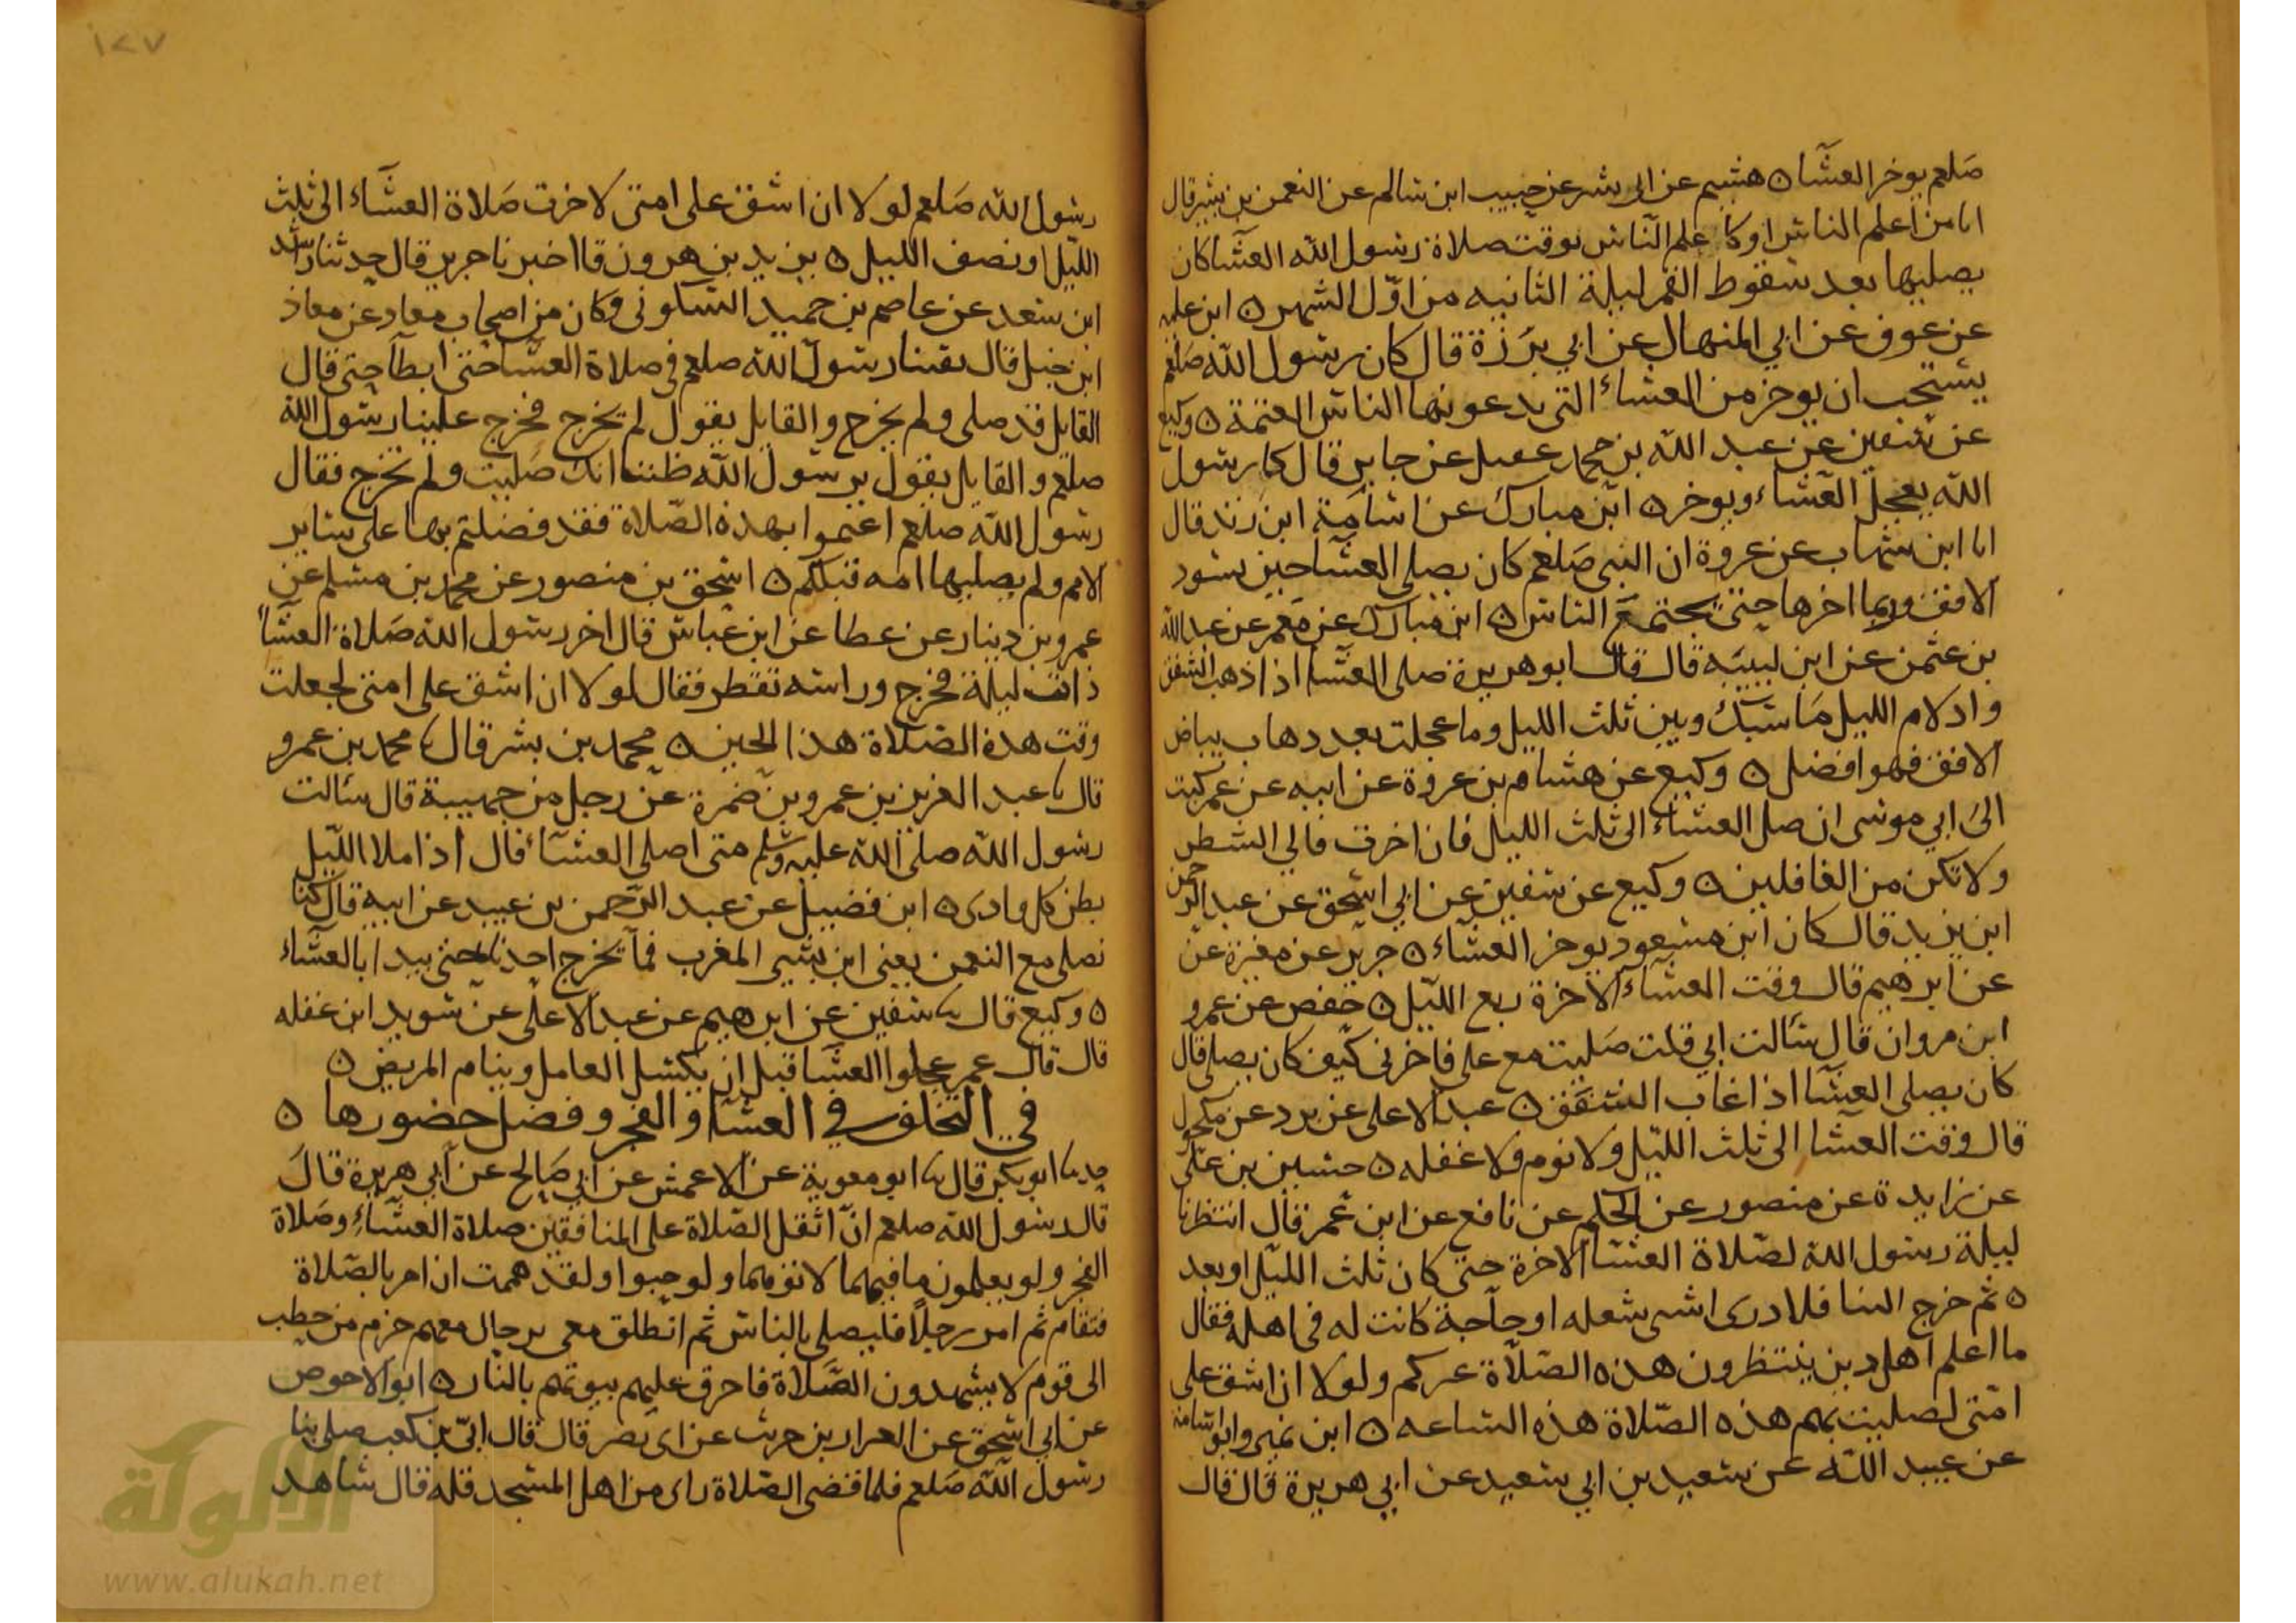 صلعم يوخر العشا ه هشيم عن ابى بشر عن حبيب ابن سالم عن النعمن بن بشير قال
انا من اعلم الناس او كاعلم الناس بوقت صلاة رسول الله العشا كان
يصليها بعد سقوط القمر ليلة الثانيه من اوّل الشهر ه ابن عليه
عن عوف عن ابي المنهال عن ابي برزة قال كان رسول الله صلعم
يستحب ان يوخر من العشاء التى يدعونها الناس العتمة ه وكيع
عن سفين عن عبد الله بن محمد عقيل عن جابر قال كا رسول
الله يعجل العشاء ويوخر ه ابن مبارك عن اسامة ابن زيد قال
انا ابن شهاب عن عروة ان النبى صلعم كان يصلى العشا حين يسود
الافق وربما اخرها حتى يجتمع الناس ه ابن مبارك عن معمر عن عبد الله
بن عثمن عن ابن لبيبه قال قال ابو هريرة صلى العشا اذا ذهب الشفق
واد لام الليل ما بينك وبين ثلث الليل وما عجلت بعد دهاب بياض
الافق فهو افضل ه وكيع عن هشام بن عروة عن ابيه عن عمر كتب
الى ابي موسى ان صل العشاء الى ثلث الليل فان اخرت فالى الشطر
ولا تكن من الغافلين ه وكيع عن سفين عن ابي اسحق عن عبد الرحمن
ابن يزيد قال كان ابن مسعود يوخر العشاء ه جرير عن مغيرة عن
عن ابرهيم قال وقت العشاء الاخرة ربع الليل ه حفص عن عمرو
ابن مروان قال سالت ابي قلت صليت مع على فاخرنى كيف كان يصلى قال
كان يصلى العشا اذا غاب الشفق ه عبد الاعلى عن برد عن مكحول
قال وقت العشا الى ثلث الليل ولا نوم ولا غفله ه حسين بن على
عن زايدة عن منصور عن الحكم عن نافع عن ابن عمر قال انتظرنا
ليلة رسول الله لصلاة العشا الاخرة حتى كان ثلث الليل او بعد
ه ثم خرج الينا فلا ادرى اشى شغله او حاجة كانت له فى اهله فقال
ما اعلم اهل دين ينتظرون هذه الصلاة غيركم ولولا ان اشق على
امّتى لصليت بهم هذه الصّلاة هذه الساعه ه ابن نمير وابو اسامة
عن عبيد الله عن سعيد بن ابي سعيد عن ابي هريرة قال قال
١٢٧
رسول الله صلعم لولا ان اشق على امتى لاخرت صلاة العشاء الى ثلث
الليل او نصف الليل ه يزيد بن هرون قا اخبرنا جرير قال حدثنا راشد
ابن سعد عن عاصم بن حميد السكونى وكان من اصحاب معاد عن معاذ
ابن جبل قال بقينا رسول الله صلعم فى صلاة العشا حتى ابطا حتى قال
القايل قد صلى ولم يخرج والقايل يقول لم يخرج فخرج علينا رسول الله
صلعم والقايل يقول يرسول الله ظننا انك صليت ولم تخرج فقال
رسول الله صلعم اعتموا بهذه الصّلاة فقد فضلتم بها على ساير
الامم ولم يصليها امه قبلكم ه اسحق بن منصور عن محمد بن مسلم عن
عمرو بن دينار عن عطا عن ابن عباس قال اخر رسول الله صلاة العشاء
ذات ليلة فخرج وراسه تقطر فقال لولا ان اشق على امتى لجعلت
وقت هذه الصلاة هذا الحين ه محمد بن بشر قال ثنا محمد بن عمرو
قال ثنا عبد العزيز بن عمرو بن ضمرة عن رجل من جهينة قال سالت
رسول الله صلى الله عليه وسلم متى اصلى العشاء قال اذا ملا الليل
بطن كل وادى ه ابن فضيل عن عبد الرحمن بن عبيد عن ابيه قال كنا
نصلى مع النعمن يعنى ابن بشير المغرب فما يخرج احدنا حتى يبدا بالعشاء
ه وكيع قال ثنا سفين عن ابرهيم عن عبد الاعلى عن سويد ابن غفله
قال قال عمر عجلوا العشا قبل ان يكسل العامل وينام المريض ه
في التخلف في العشا والفجر وفضل حضورها ه
حدثنا ابو بكر قال ثنا ابو معوية عن الاعمش عن ابي صالح عن ابي هريرة قال
قال رسول الله صلعم انّ اثقل الصّلاة على المنافقين صلاة العشاء وصلاة
الفجر ولو يعلمون ما فيهما لاتوهما ولو حبوا ولقد هممت ان امر بالصّلاة
فتقام ثم امر رجلا فليصلى بالناس ثم انطلق معى برجال معهم حزم من حطب
الى قوم لا يشهدون الصّلاة فاحرق عليهم بيوتهم بالنار ه ابو الاحوص
عن ابي اسحق عن العيزار بن حريث عن ابى بصر قال قال ابيّ بن كعب صلى بنا
رسول الله صلعم فلما قضى الصّلاة راى من اهل المسجد قله قال شاهد
الألوكة
www.alukah.net